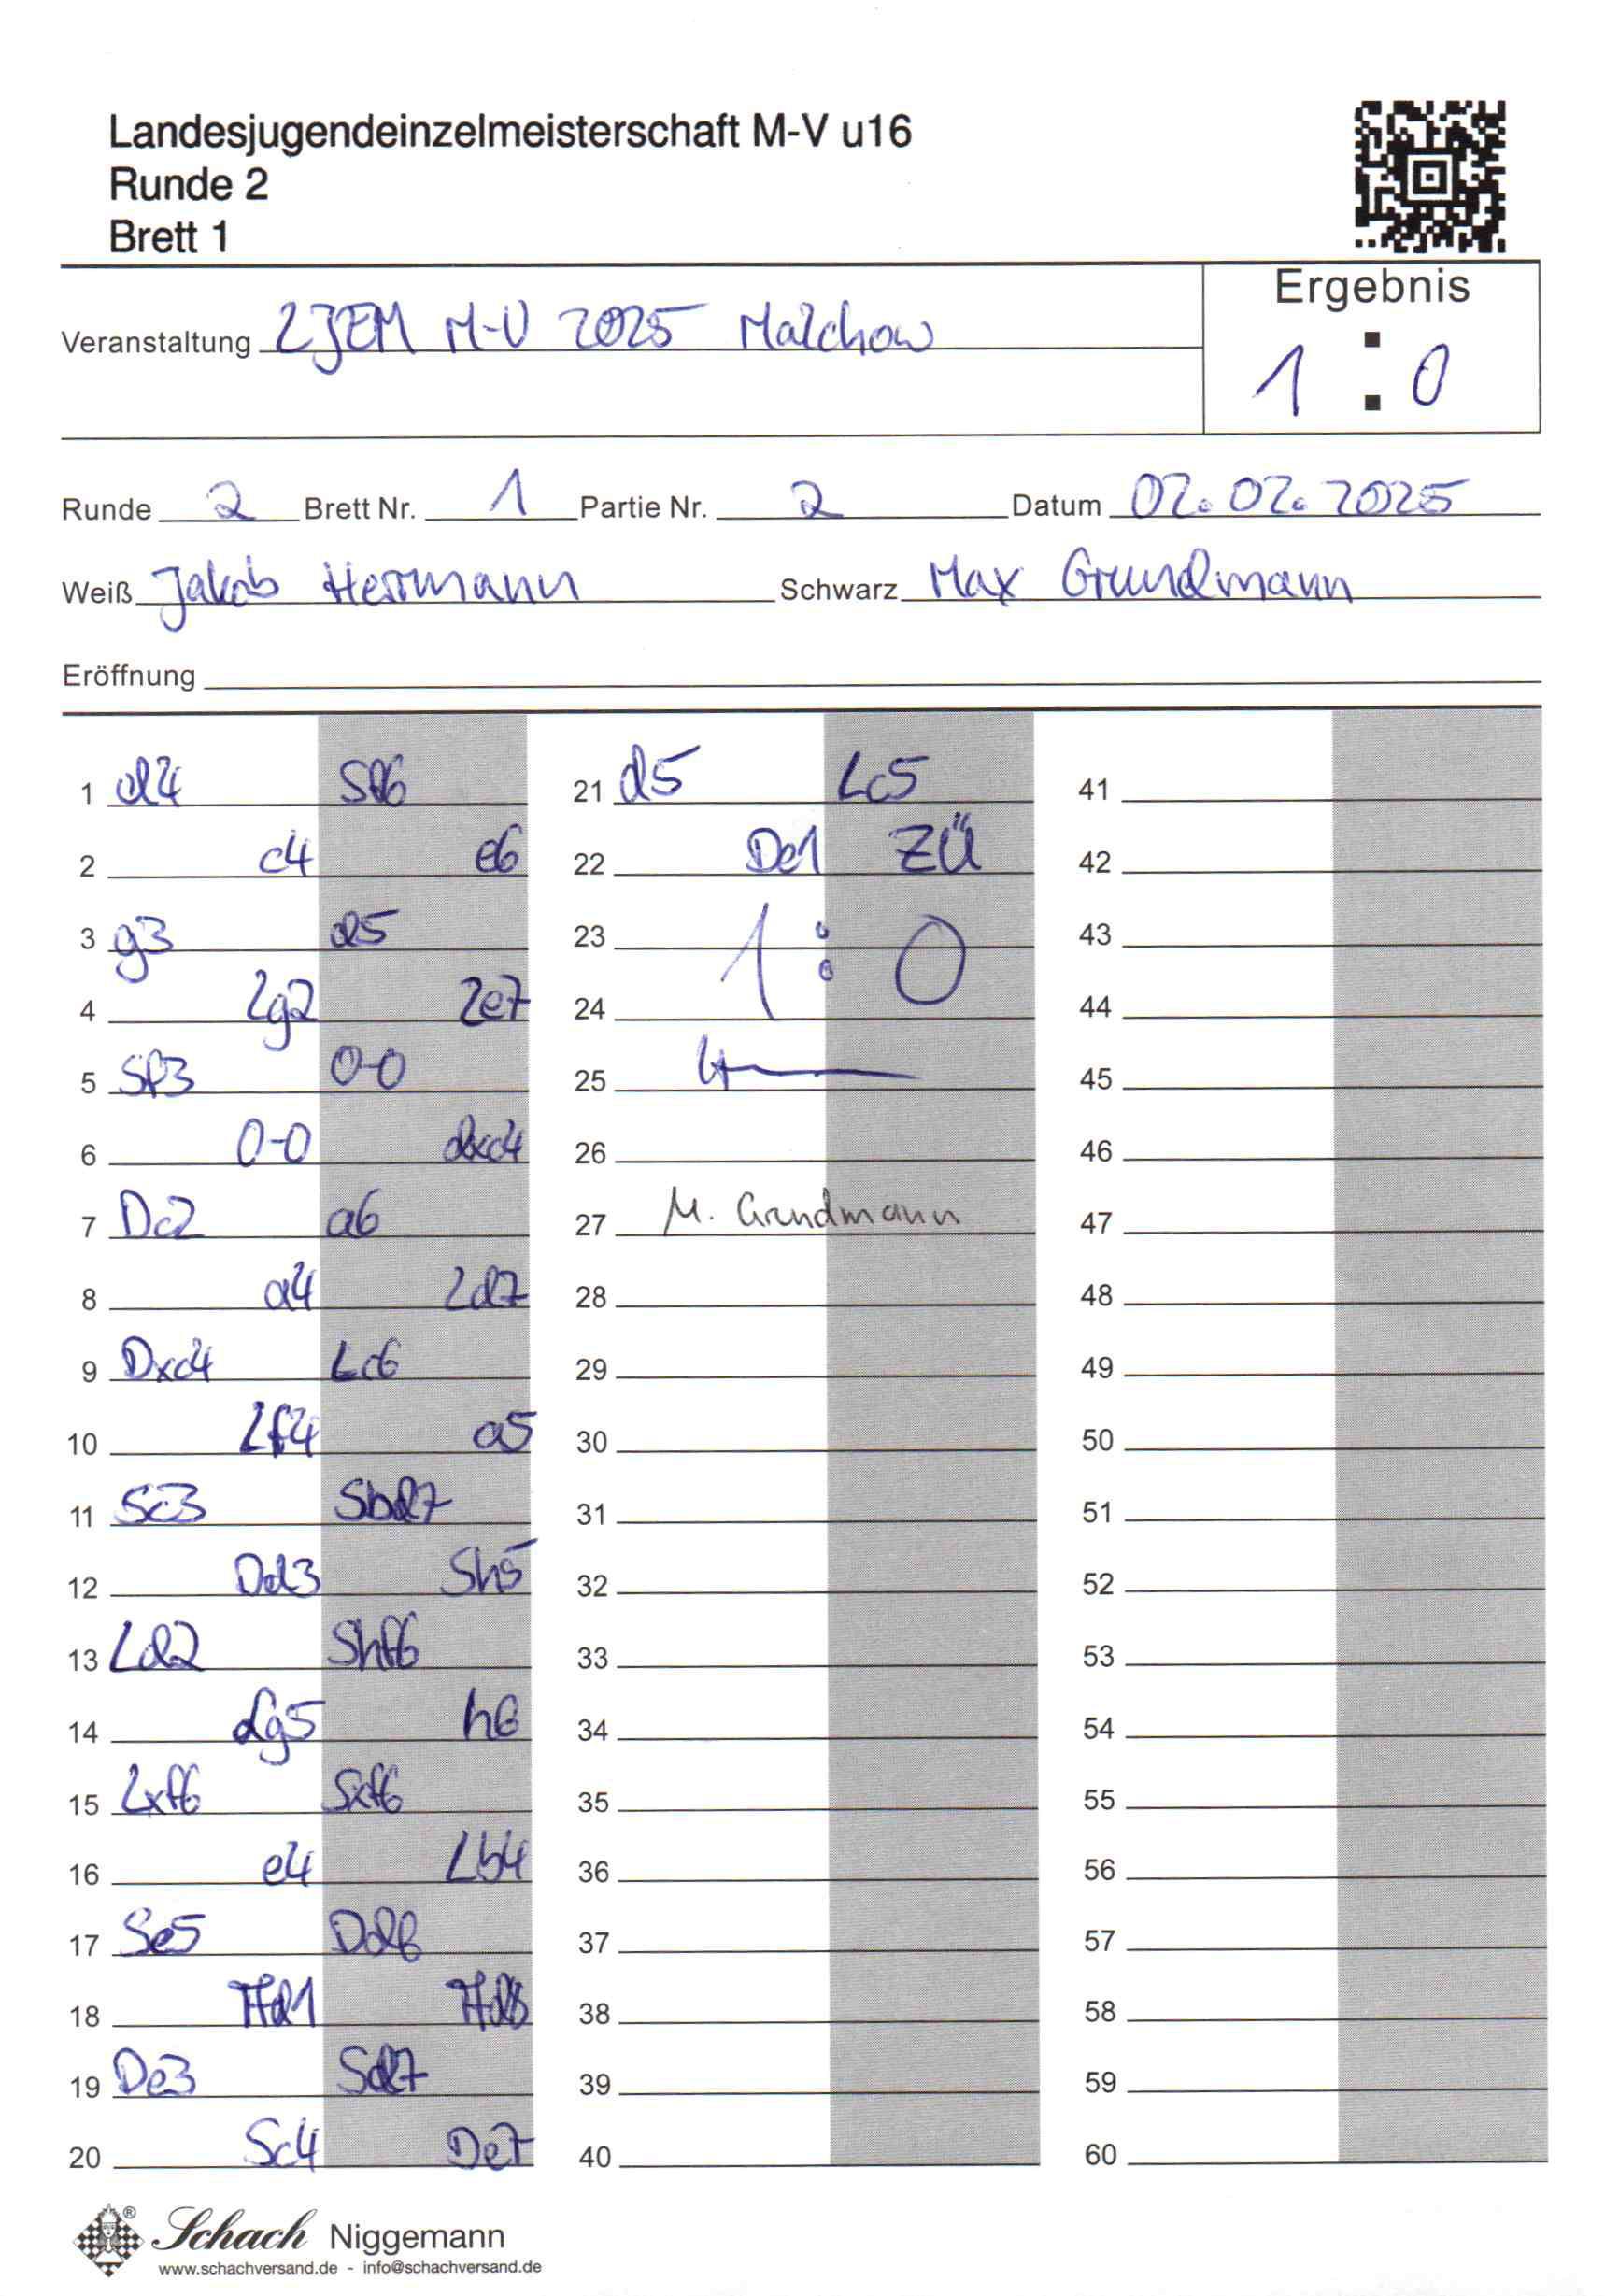 Landesjugendeinzelmeisterschaft M-V u16
Runde 2
Brett 1
Ergebnis
Veranstaltung LJEM M-V 2025 Malchow
1 : 0
Runde 2 Brett Nr. 1 Partie Nr. 2 Datum 02.02.2025
Weiß Jakob Herrmann Schwarz Max Grundmann
Eröffnung
1 d4 Sf6
2 c4 e6
3 g3 d5
4 Lg2 Le7
5 Sf3 0-0
6 0-0 dxc4
7 Dc2 a6
8 a4 Ld7
9 Dxc4 Lc6
10 Lf4 a5
11 Sc3 Sbd7
12 Dd3 Sh5
13 Ld2 Shf6
14 Lg5 h6
15 Lxf6 Sxf6
16 e4 Lb4
17 Se5 Dd6
18 Tfd1 Tfd8
19 De3 Sd7
20 Sc4 De7
21 d5 Lc5
22 De1 ZÜ
23 1:0
24
25
26
27 M. Grundmann
28
29
30
31
32
33
34
35
36
37
38
39
40
41
42
43
44
45
46
47
48
49
50
51
52
53
54
55
56
57
58
59
60
® Schach Niggemann
www.schachversand.de - info@schachversand.de